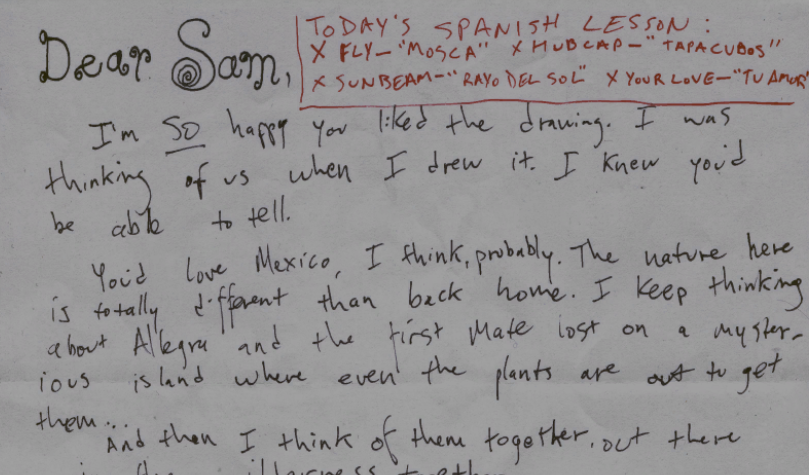 Dear Sam,
TODAY'S SPANISH LESSON:
X FLY-"MOSCA" X HUBCAP-"TAPACUBOS"
X SUNBEAM-"RAYO DEL SOL" X YOUR LOVE-"TU AMOR"
I'm SO happy you liked the drawing. I was
thinking of us when I drew it. I knew you'd
be able to tell.
You'd love Mexico, I think, probably. The nature here
is totally different than back home. I keep thinking
about Allegra and the first Mate lost on a myster-
ious island where even the plants are out to get
them...
And then I think of them together, out there